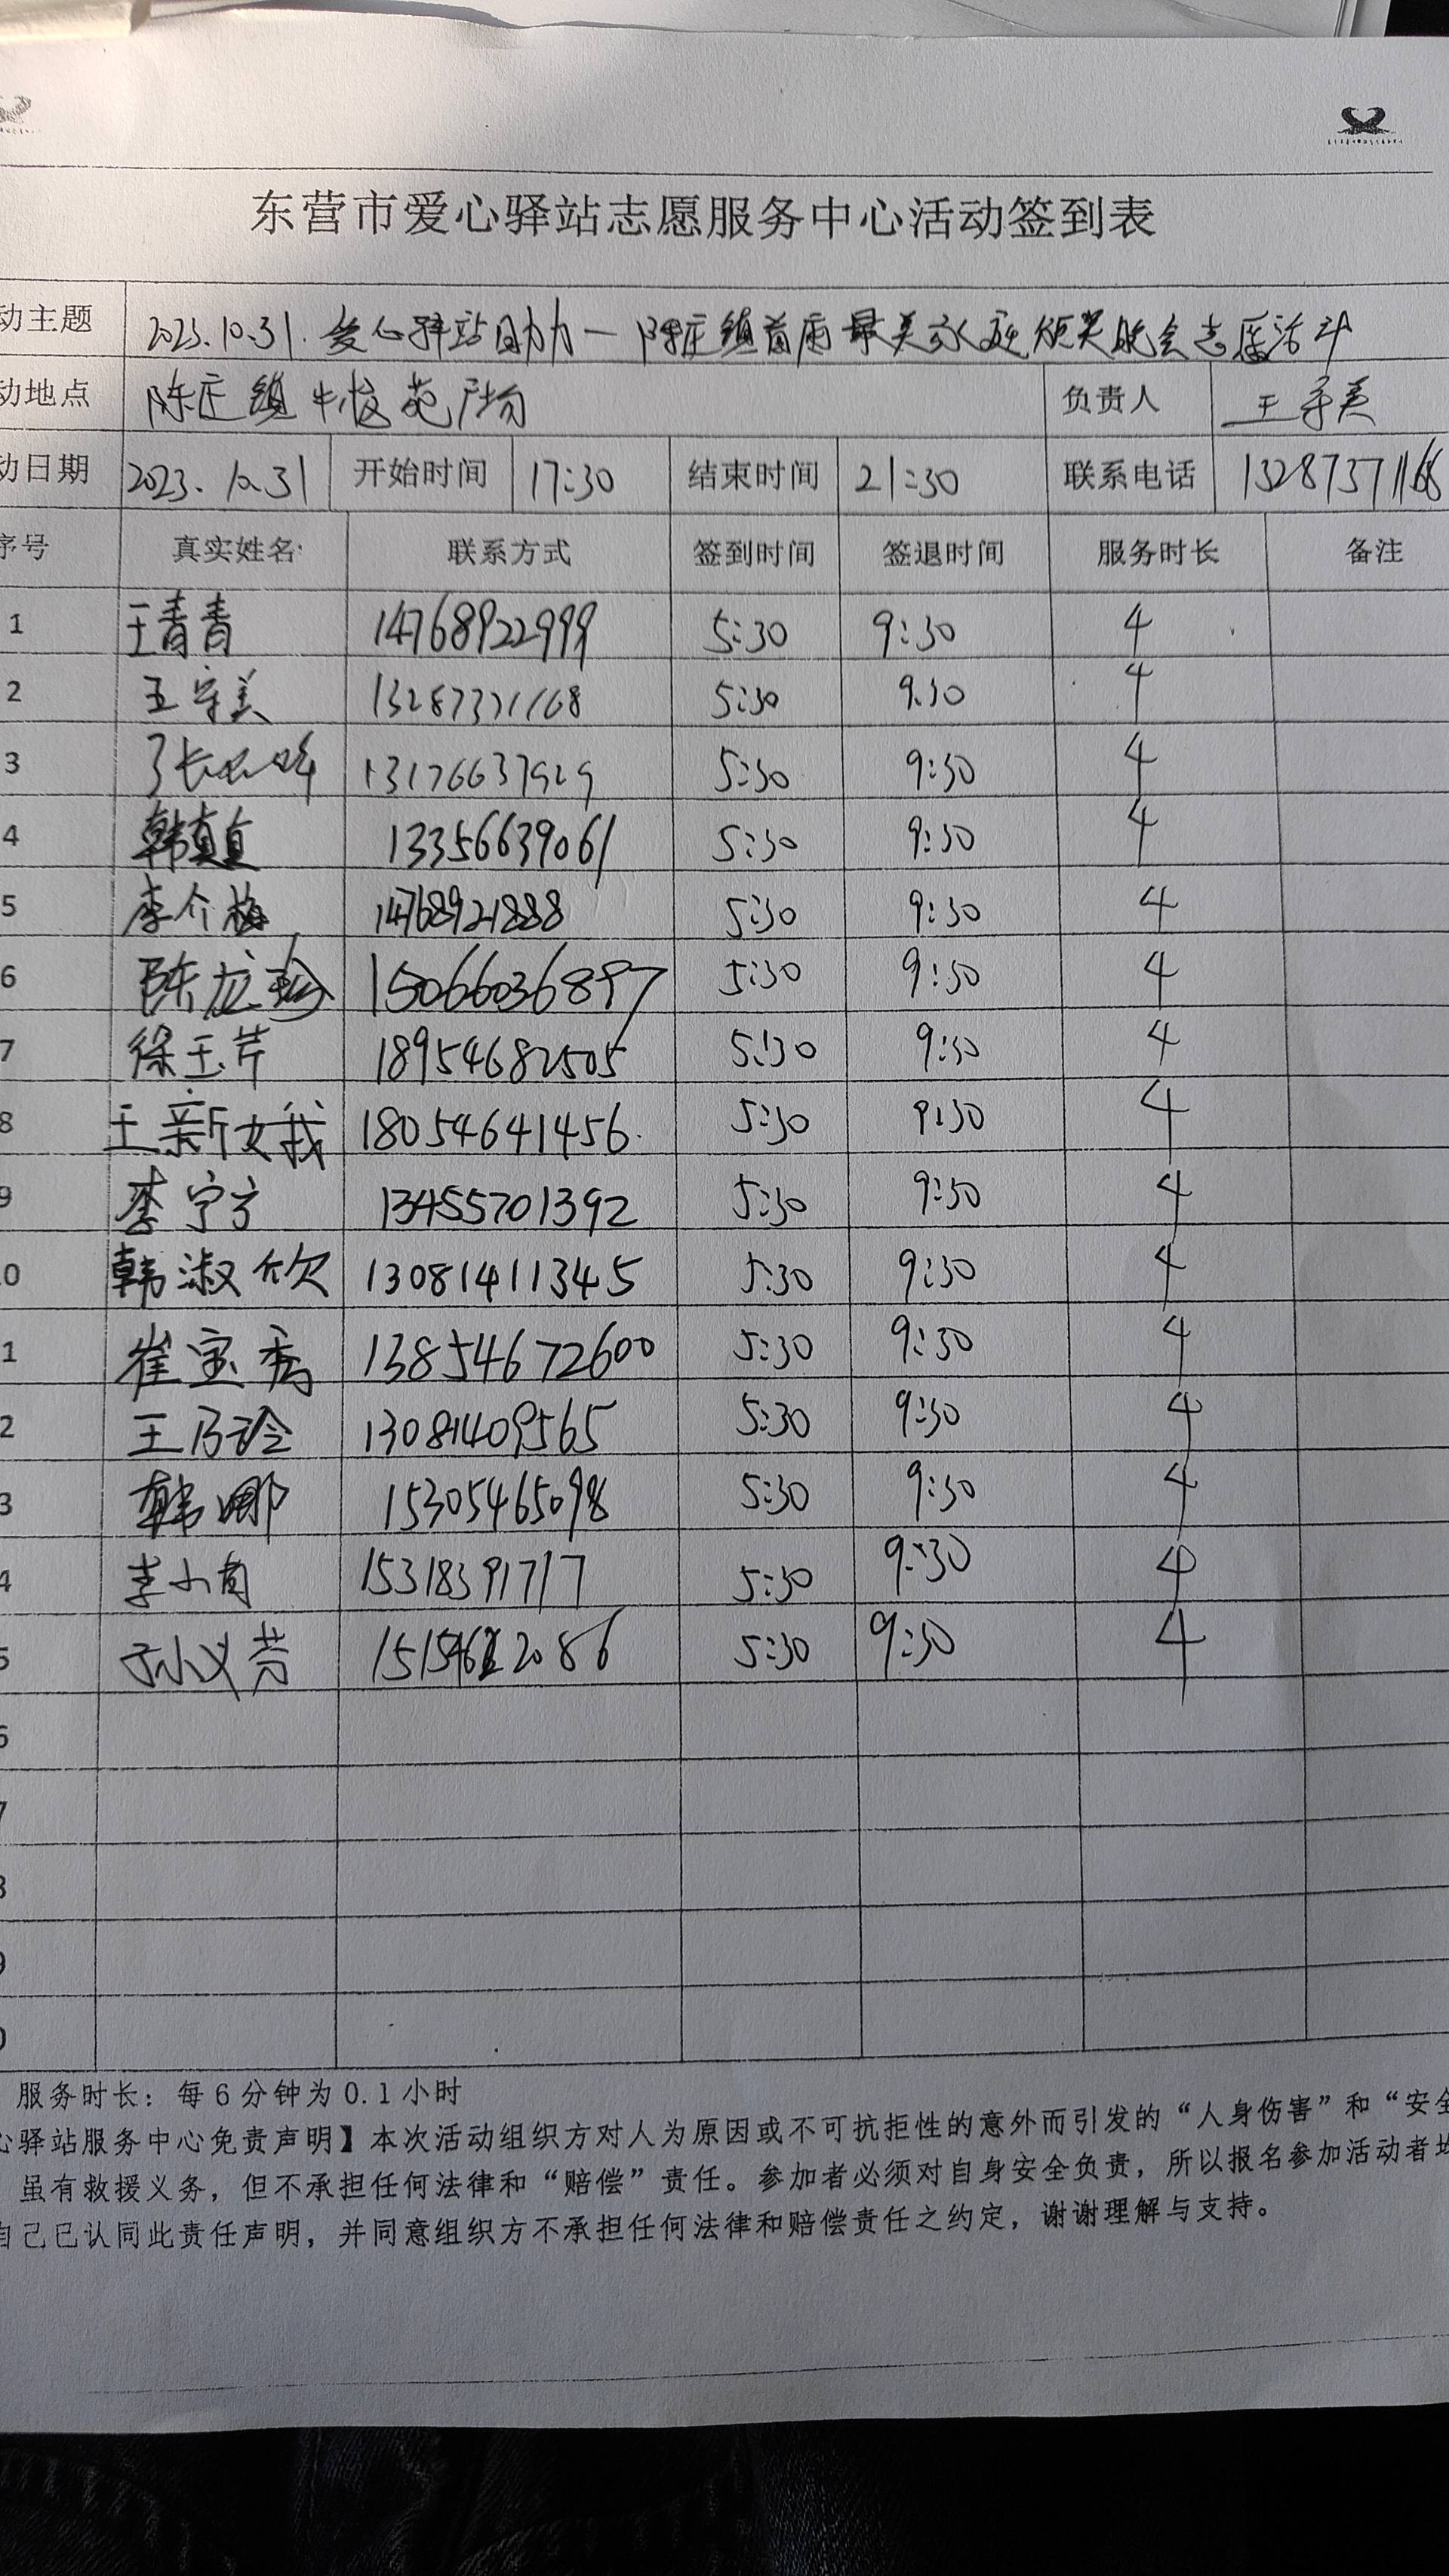 东营市爱心驿站志愿服务中心活动签到表
动主题 2023.10.31.爱心驿站助力一陈庄镇首届最美家庭颁奖晚会志愿活动
动地点 陈庄镇 广场 负责人 王守美
动日期 2023.10.31 开始时间 17:30 结束时间 21:30 联系电话
序号 真实姓名 联系方式 签到时间 签退时间 服务时长 备注
1 王青青 14768922999 5:30 9:30 4
2 王守美 5:30 9.30 4
3 5:30 9:30 4
4 韩真真 13356639061 5:30 9:30 4
5 李介梅 14768921888 5:30 9:30 4
6 陈龙 15066036897 5:30 9:30 4
7 徐玉芹 18954682505 5:30 9:30 4
8 王新娥 18054641456. 5:30 9:30 4
9 李宁方 13455701392 5:30 9:30 4
0 韩淑欣 13081411345 5:30 9:30 4
1 崔宝秀 13854672600 5:30 9:30 4
2 王乃玲 13081409565 5:30 9:30 4
3 韩娜 15305465098 5:30 9:30 4
4 李小 15318391717 5:30 9:30 4
5 孙义芳 5:30 9:30 4
6
7
8
9
0
服务时长：每6分钟为0.1小时
心驿站服务中心免责声明】本次活动组织方对人为原因或不可抗拒性的意外而引发的“人身伤害”和“安全
虽有救援义务，但不承担任何法律和“赔偿”责任。参加者必须对自身安全负责，所以报名参加活动者均
自己已认同此责任声明，并同意组织方不承担任何法律和赔偿责任之约定，谢谢理解与支持。